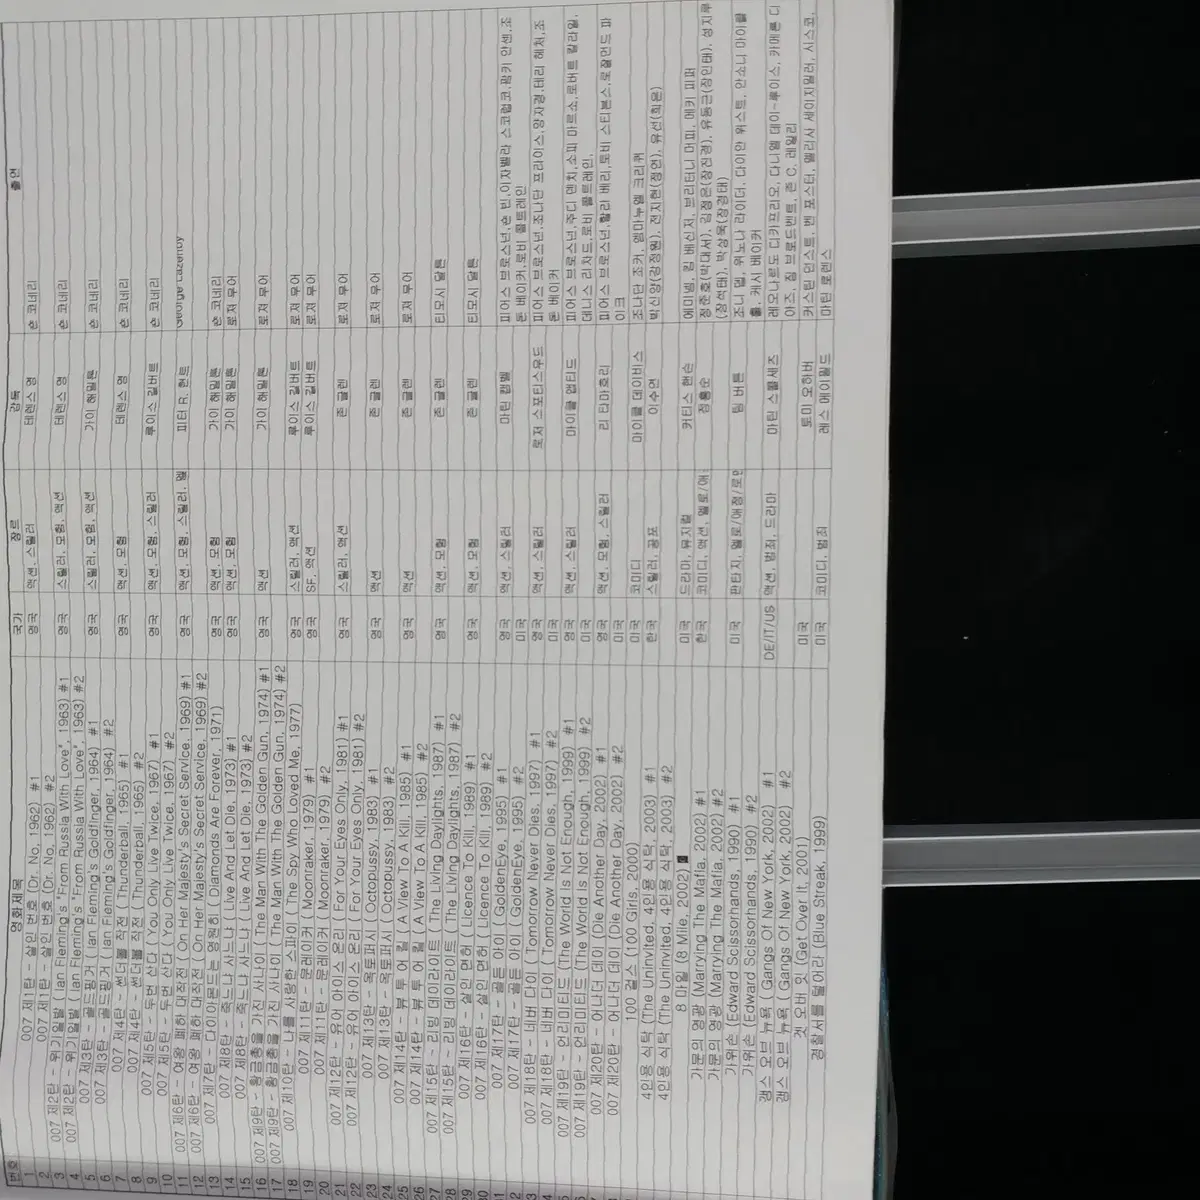 번호 영화제목 국가 장르 감독 출연
1 007 제1탄 - 살인 번호 (Dr. No, 1962) #1 영국 액션, 스릴러 테렌스 영 숀 코네리
2 007 제1탄 - 살인 번호 (Dr. No, 1962) #2
3 007 제2탄 - 위기일발 (Ian Fleming's "From Russia With Love", 1963) #1 영국 스릴러, 모험, 액션 테렌스 영 숀 코네리
4 007 제2탄 - 위기일발 (Ian Fleming's "From Russia With Love", 1963) #2
5 007 제3탄 - 골드핑거 (Ian Fleming's Goldfinger, 1964) #1 영국 스릴러, 모험, 액션 가이 해밀튼 숀 코네리
6 007 제3탄 - 골드핑거 (Ian Fleming's Goldfinger, 1964) #2
7 007 제4탄 - 썬더볼 작전 (Thunderball, 1965) #1 영국 액션, 모험 테렌스 영 숀 코네리
8 007 제4탄 - 썬더볼 작전 (Thunderball, 1965) #2
9 007 제5탄 - 두번 산다 (You Only Live Twice, 1967) #1 영국 액션, 모험, 스릴러 루이스 길버트 숀 코네리
10 007 제5탄 - 두번 산다 (You Only Live Twice, 1967) #2
11 007 제6탄 - 여왕 폐하 대작전 (On Her Majesty's Secret Service, 1969) #1 영국 액션, 모험, 스릴러, 멜 피터 R. 헌트 George Lazenby
12 007 제6탄 - 여왕 폐하 대작전 (On Her Majesty's Secret Service, 1969) #2
13 007 제7탄 - 다이아몬드는 영원히 (Diamonds Are Forever, 1971) 영국 액션, 모험 가이 해밀튼 숀 코네리
14 007 제8탄 - 죽느냐 사느냐 (Live And Let Die, 1973) #1 영국 액션, 모험 가이 해밀튼 로저 무어
15 007 제8탄 - 죽느냐 사느냐 (Live And Let Die, 1973) #2
16 007 제9탄 - 황금총을 가진 사나이 (The Man With The Golden Gun, 1974) #1 영국 액션 가이 해밀튼 로저 무어
17 007 제9탄 - 황금총을 가진 사나이 (The Man With The Golden Gun, 1974) #2
18 007 제10탄 - 나를 사랑한 스파이 (The Spy Who Loved Me, 1977) 영국 스릴러, 액션 루이스 길버트 로저 무어
19 007 제11탄 - 문레이커 (Moonraker, 1979) #1 영국 SF, 액션 루이스 길버트 로저 무어
20 007 제11탄 - 문레이커 (Moonraker, 1979) #2
21 007 제12탄 - 유어 아이스 온리 (For Your Eyes Only, 1981) #1 영국 스릴러, 액션 존 글렌 로저 무어
22 007 제12탄 - 유어 아이스 온리 (For Your Eyes Only, 1981) #2
23 007 제13탄 - 옥토퍼시 (Octopussy, 1983) #1 영국 액션 존 글렌 로저 무어
24 007 제13탄 - 옥토퍼시 (Octopussy, 1983) #2
25 007 제14탄 - 뷰 투 어 킬 (A View To A Kill, 1985) #1 영국 액션 존 글렌 로저 무어
26 007 제14탄 - 뷰 투 어 킬 (A View To A Kill, 1985) #2
27 007 제15탄 - 리빙 데이라이트 (The Living Daylights, 1987) #1 영국 액션, 모험 존 글렌 티모시 달튼
28 007 제15탄 - 리빙 데이라이트 (The Living Daylights, 1987) #2
29 007 제16탄 - 살인 면허 (Licence To Kill, 1989) #1 영국 액션, 모험 존 글렌 티모시 달튼
30 007 제16탄 - 살인 면허 (Licence To Kill, 1989) #2
007 제17탄 - 골든 아이 (GoldenEye, 1995) #1 영국 액션, 스릴러 마틴 캠벨 피어스 브로스넌,숀 빈,이자벨라 스코럽코,팜키 얀센,조
007 제17탄 - 골든 아이 (GoldenEye, 1995) #2 미국 돈 베이커,로비 콜트레인
007 제18탄 - 네버 다이 (Tomorrow Never Dies, 1997) #1 영국 액션, 스릴러 로저 스포티스우드 피어스 브로스넌,조나단 프라이스,양자경,테리 헤처,조
007 제18탄 - 네버 다이 (Tomorrow Never Dies, 1997) #2 미국 돈 베이커
007 제19탄 - 언리미티드 (The World Is Not Enough, 1999) #1 영국 액션, 스릴러 마이클 앱티드 피어스 브로스넌,주디 덴치,소피 마르소,로버트 칼라일,
007 제19탄 - 언리미티드 (The World Is Not Enough, 1999) #2 미국 데니스 리차드,로비 콜트레인,
007 제20탄 - 어나더 데이 (Die Another Day, 2002) #1 영국 액션, 모험, 스릴러 리 타마호리 피어스 브로스넌,할리 베리,토비 스티븐스,로잘먼드 파
007 제20탄 - 어나더 데이 (Die Another Day, 2002) #2 미국 이크
100 걸스 (100 Girls, 2000) 미국 코미디 마이클 데이비스 조나단 조커, 엠마누엘 크리퀴
4인용 식탁 (The Uninvited, 4인용 식탁, 2003) #1 한국 스릴러, 공포 이수연 박신양(강정원), 전지현(정연), 유선(희은)
4인용 식탁 (The Uninvited, 4인용 식탁, 2003) #2
8 마일 (8 Mile, 2002) 미국 드라마, 뮤지컬 커티스 핸슨 에미넴, 킴 베신저, 브리터니 머피, 메키 피퍼
가문의 영광 (Marrying The Mafia, 2002) #1 한국 코미디, 액션, 멜로/애 정흥순 정준호(박대서), 김정은(장진경), 유동근(장인태), 성지루
가문의 영광 (Marrying The Mafia, 2002) #2 (장석태), 박상욱(장경태)
가위손 (Edward Scissorhands, 1990) #1 미국 판타지, 멜로/애정/로맨 팀 버튼 조니 뎁, 위노나 라이더, 다이안 위스트, 안소니 마이클
가위손 (Edward Scissorhands, 1990) #2 홀, 캐시 베이커
갱스 오브 뉴욕 (Gangs Of New York, 2002) #1 DE/IT/US 액션, 범죄, 드라마 마틴 스콜세즈 레오나르도 디카프리오, 다니엘 데이-루이스, 카메론 디
갱스 오브 뉴욕 (Gangs Of New York, 2002) #2 아즈, 짐 브로드벤트, 존 C. 레일리
겟 오버 잇 (Get Over It, 2001) 미국 토미 오하버 커스틴 던스트, 벤 포스터, 멜리사 세이지밀러, 시스코,
경찰서를 털어라 (Blue Streak, 1999) 미국 코미디, 범죄 레스 메이필드 마틴 로렌스